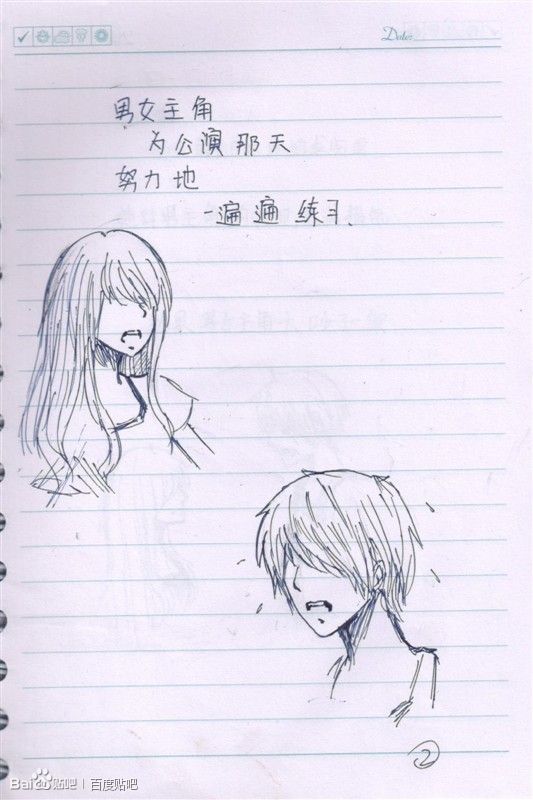 Date:
男女主角
为公演那天
努力地
一遍遍练习.
②
Bai贴吧 | 百度贴吧